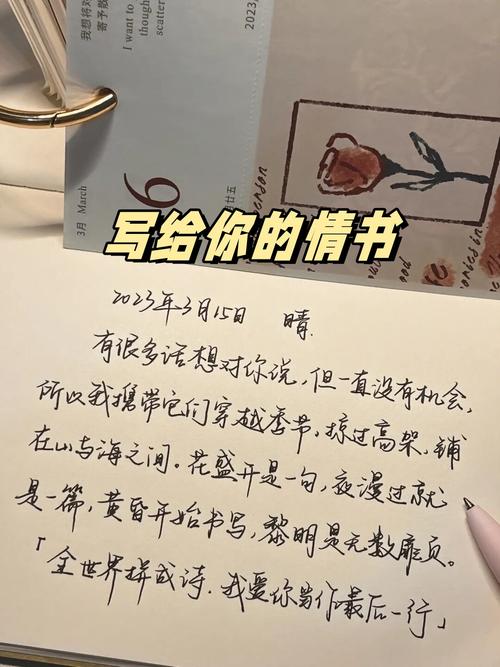 我想将对
寄予散
I want to
though
scatter
2023
3月 March
6
月廿五
写给你的情书
2023年3月15日 晴.
有很多话想对你说,但一直没有机会,
所以我携带它们穿越季节,掠过高架,铺
在山与海之间。花盛开是一句,夜漫过就
是一篇,黄昏开始书写,黎明是无数扉页。
「全世界拼成诗.我爱你当作最后一行」